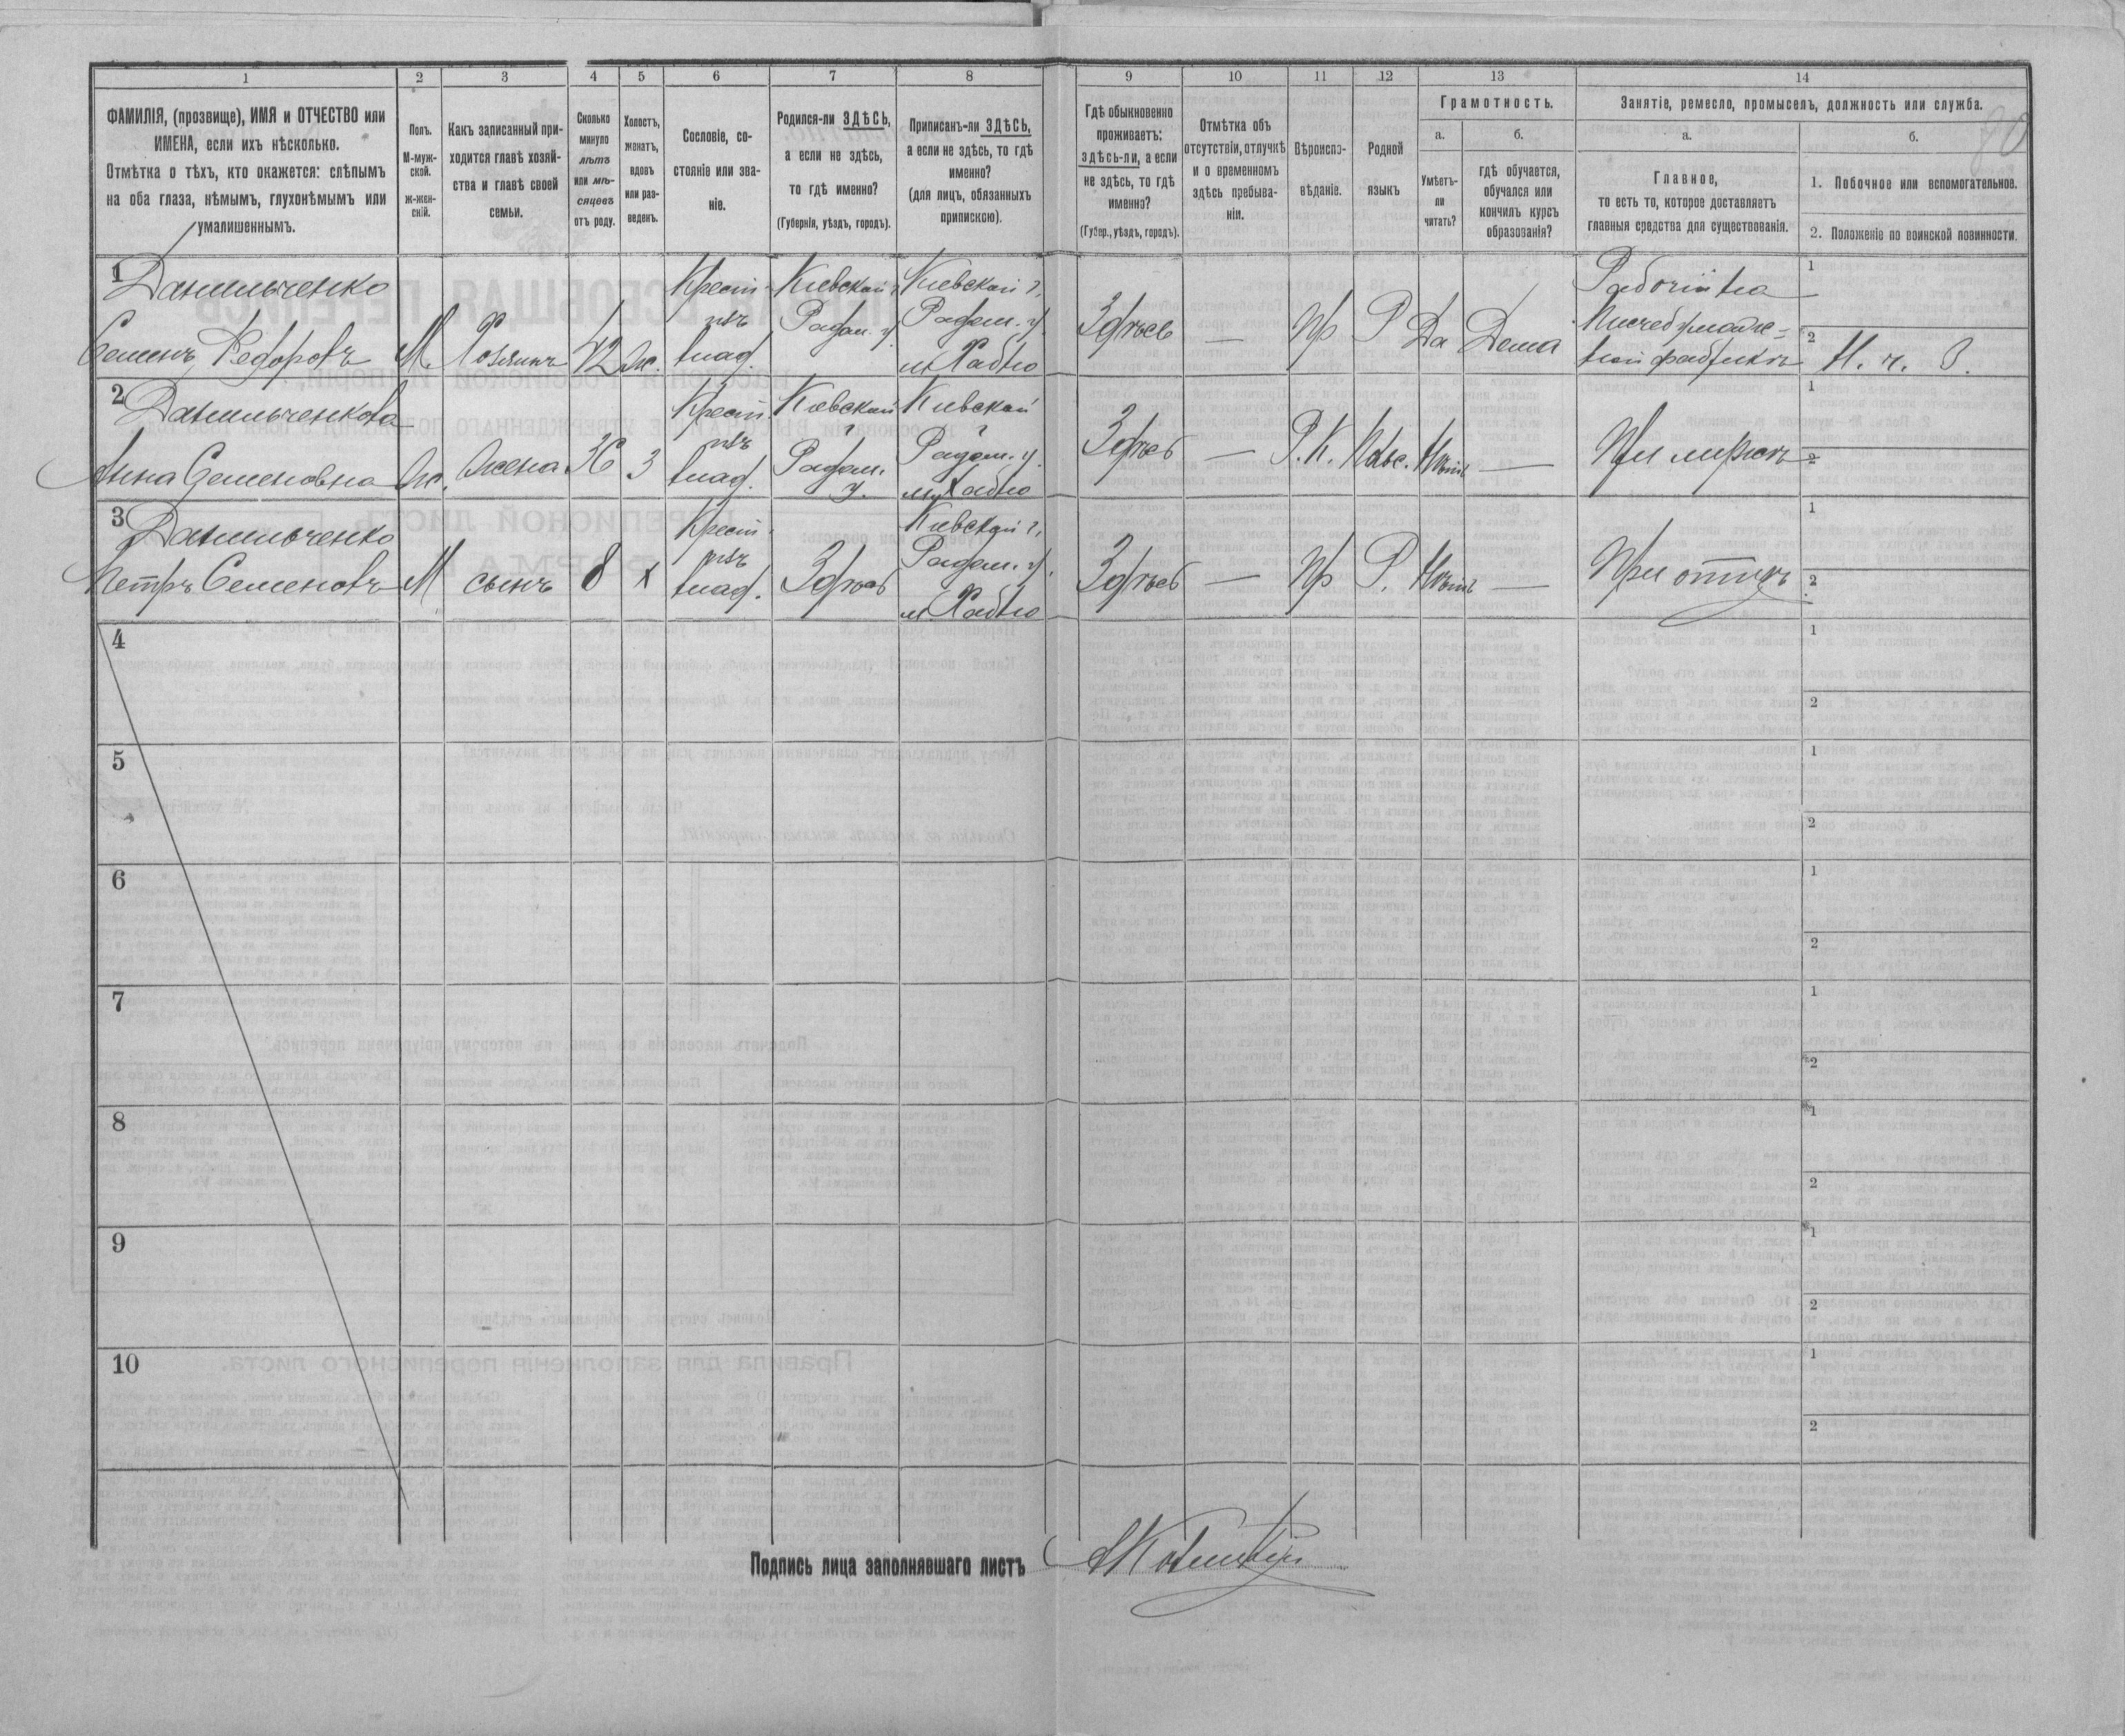 1 2 3 4 5 6 7 8 9 10 11 12 13 14
ФАМИЛІЯ, (прозвище), ИМЯ и ОТЧЕСТВО или
ИМЕНА, если ихъ нѣсколько.
Отмѣтка о тѣхъ, кто окажется: слѣпымъ
на оба глаза, нѣмымъ, глухонѣмымъ или
умалишеннымъ.
Полъ.
М-муж-
ской.
Ж-жен-
скій.
Какъ записанный при-
ходится главѣ хозяй-
ства и главѣ своей
семьи.
Сколько
минуло
лѣтъ
или мѣ-
сяцевъ
отъ роду.
Холостъ,
женатъ,
вдовъ
или раз-
веденъ.
Сословіе, со-
стояніе или зва-
ніе.
Родился-ли ЗДѢСЬ,
а если не здѣсь,
то гдѣ именно?
(Губернія, уѣздъ, городъ).
Приписанъ-ли ЗДѢСЬ,
а если не здѣсь, то гдѣ
именно?
(для лицъ, обязанныхъ
припискою).
Гдѣ обыкновенно
проживаетъ:
здѣсь-ли, а если
не здѣсь, то гдѣ
именно?
(Губер., уѣздъ, городъ).
Отмѣтка объ
отсутствіи, отлучкѣ
и о временномъ
здѣсь пребыва-
ніи.
Вѣроиспо-
вѣданіе.
Родной
языкъ
Грамотность.
а.
Умѣетъ-
ли
читать?
б.
гдѣ обучается,
обучался или
кончилъ курсъ
образованія?
Занятіе, ремесло, промыселъ, должность или служба.
а.
Главное,
то есть то, которое доставляетъ
главныя средства для существованія.
б.
1. Побочное или вспомогательное.
2. Положеніе по воинской повинности.
1 Данильченко
Семенъ Федоровъ
М.
Хозяинъ
42
ж.
Крест.
изъ
влад.
Кіевской г.
Радом. у.
Кіевской г.
Радом. у.
м. Хабно
Здѣсь
—
Пр
Р
Да
Дома
Рабочій на
Писчебумаж-
ной фабрикѣ
1
2 Н. ч. З.
2 Данильченкова
Анна Семеновна
Ж.
Жена
36
З
Крест
изъ
влад.
Кіевской
г.
Радом.
у.
Кіевской
г.
Радом. у.
м. Хабно
Здѣсь
—
Р.К.
Польс.
Нѣтъ
—
При мужѣ
1
2
3 Данильченко
Петръ Семеновъ
М
сынъ
8
х
Крест.
изъ
влад.
Здѣсь
Кіевской г.
Радом. у.
м. Хабно
Здѣсь
—
Пр
Р.
Нѣтъ
—
При отцѣ
1
2
4
1
2
5
1
2
6
1
2
7
1
2
8
1
2
9
1
2
10
1
2
Подпись лица заполнявшаго листъ